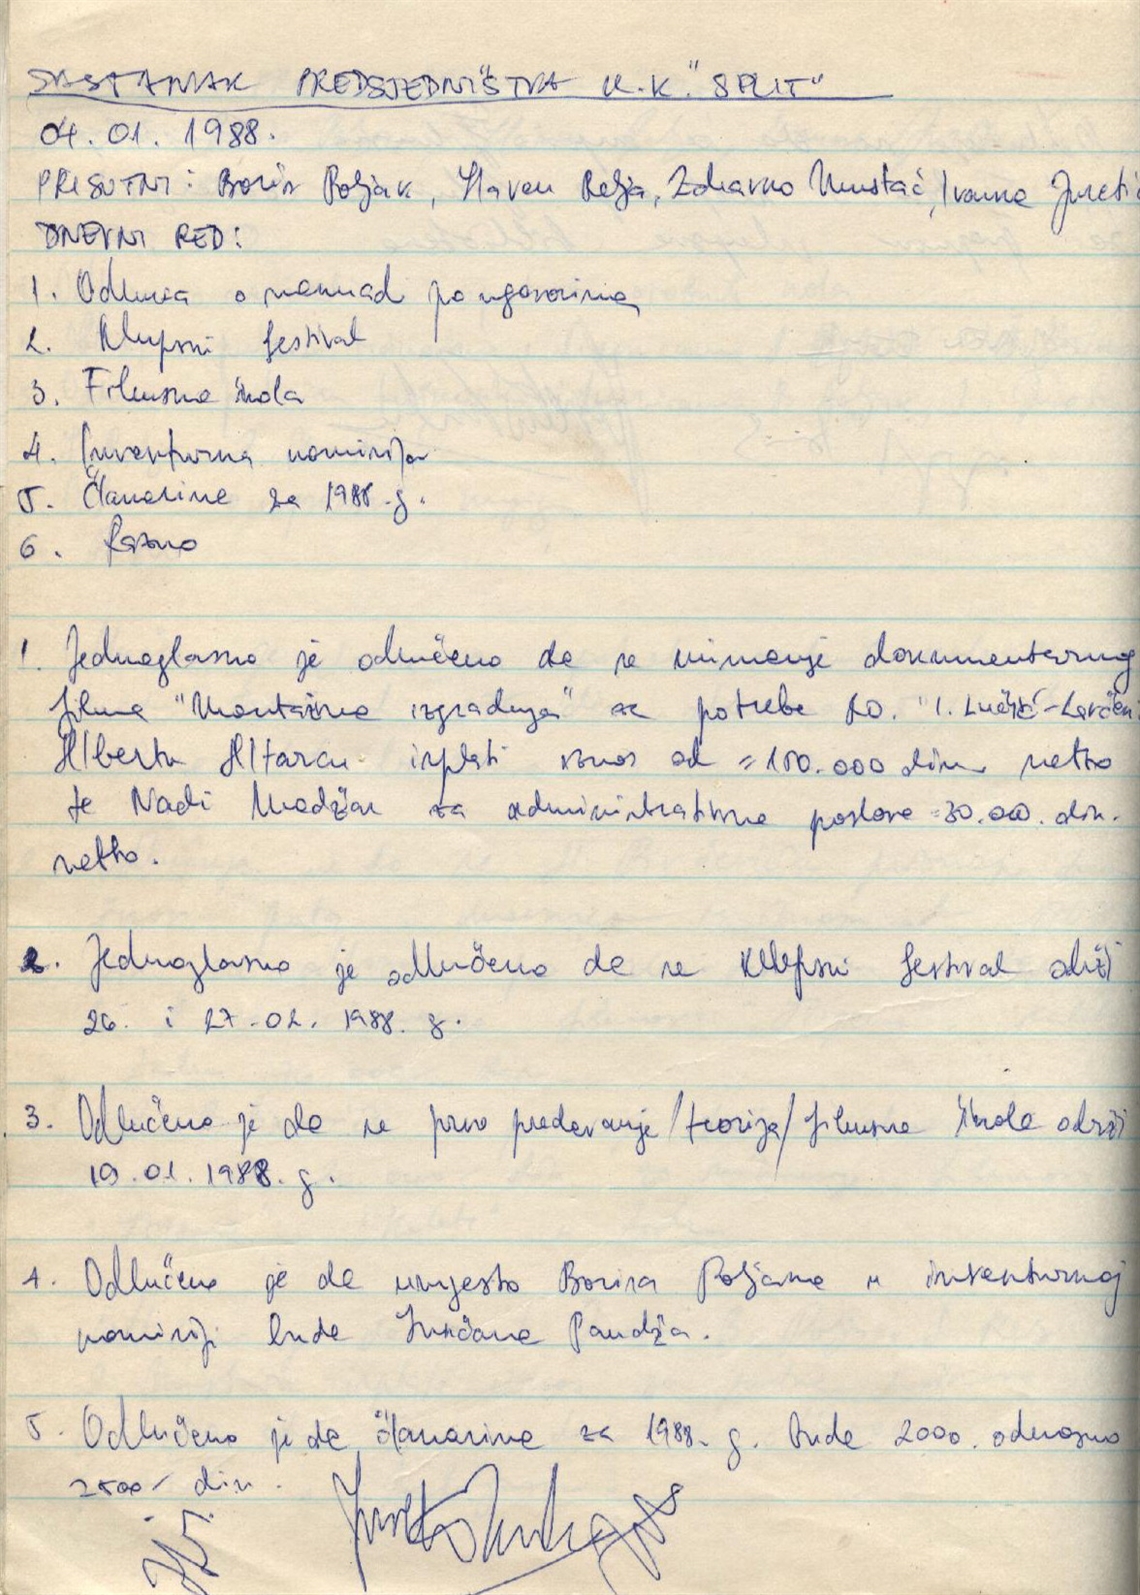 SASTANAK PREDSJEDNIŠTVA K.K. "SPLIT"
04.01.1988.
PRISUTNI: Boris Poljak, Slaven Relja, Zdravko Mustać, Ivana Jureti
DNEVNI RED:
1. Odluka o naknadi po ugovorima
2. Klupski festival
3. Filmska škola
4. Inventurna komisija
5. Članarine za 1988.g.
6. Razno
1. Jednoglasno je odlučeno da se snimanje dokumentarnog
filma "Montažna izgradnja" za potrebe RO. "I. Lučić-Lavčević
Albertu Altarcu isplati iznos od =150.000 din netto
te Nadi Madžar za administrativne poslove =30.000. din.
netto.
2. Jednoglasno je odlučeno da se klupski festival održi
26. i 27.02. 1988. g.
3. Odlučeno je da se prvo predavanje /teorija/ filmske škole održi
19.01.1988. g.
4. Odlučeno je da umjesto Borisa Poljaka u inventurnoj
komisiji bude Sunčana Pandža.
5. Odlučeno je da članarine za 1988. g. bude 2000. odnosno
2500/ din.